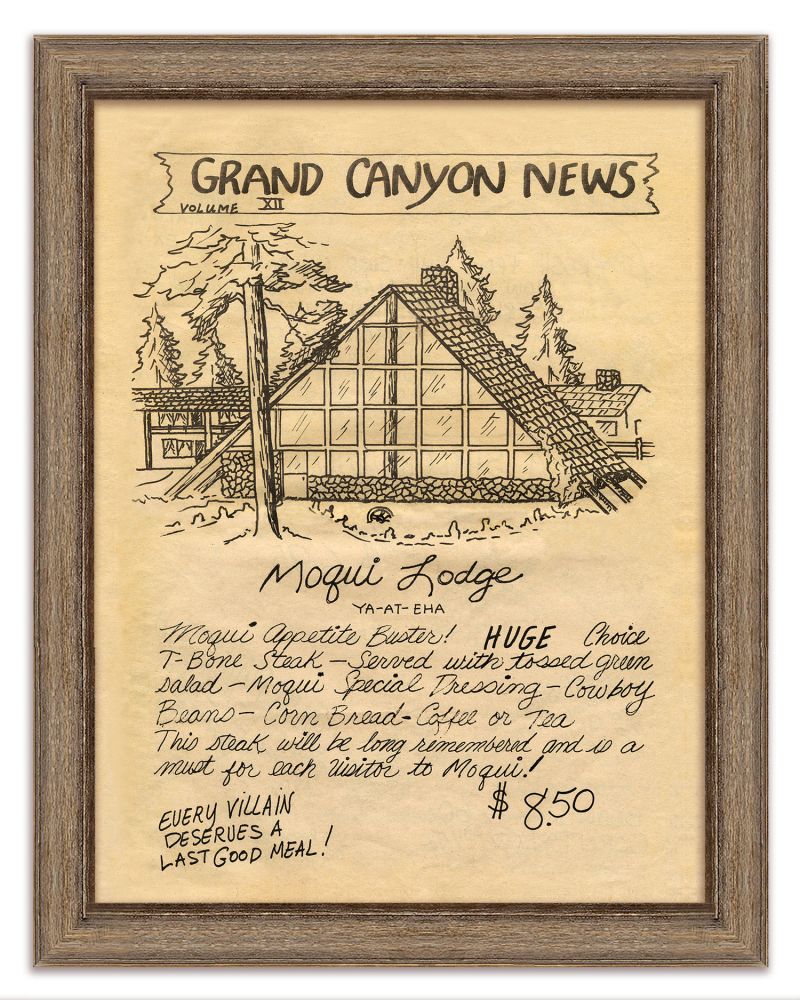 GRAND CANYON NEWS
VOLUME XII
Moqui Lodge
YA-AT-EHA
Moqui Appetite Buster! HUGE Choice
T-Bone Steak - Served with tossed green
salad - Moqui Special Dressing - Cowboy
Beans - Corn Bread - Coffee or Tea
This steak will be long remembered and is a
must for each visitor to Moqui!
$ 8.50
EVERY VILLAIN
DESERVES A
LAST GOOD MEAL!